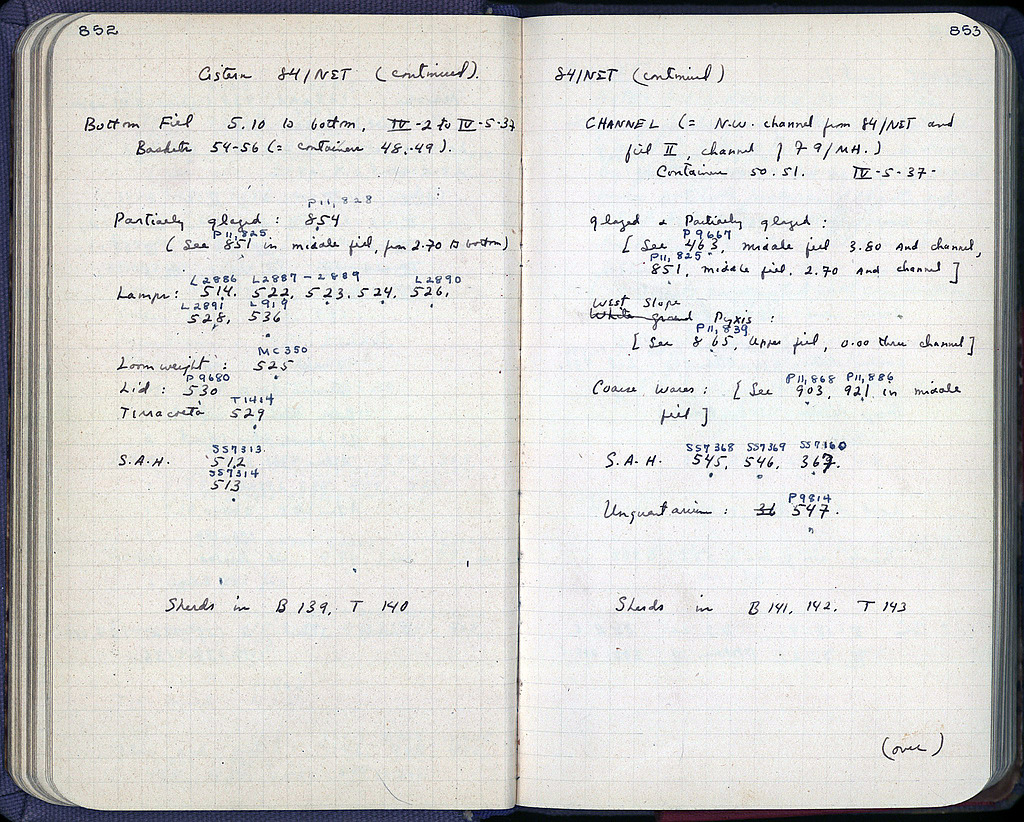 852
Cistern 84/NET (continued).
Bottom Fill 5.10 to bottom, IV-2 to IV-5-37
Baskets 54-56 (= containers 48.-49).
P11,828
Partially glazed : 854
P11,825
(See 851 in middle fill, from 2.70 to bottom)
L2886 L2887-2889 L2890
Lamps: 514. 522, 523. 524, 526,
L2891 L919
528, 536
MC350
Loomweight : 525
P9680
Lid : 530
T1414
Terracotta 529
SS7313
S.A.H. 512
SS7314
513
Sherds in B 139, T 140
853
84/NET (continued)
CHANNEL (= N.W. channel from 84/NET and
fill II, channel 79/MH.)
Container 50. 51. IV-5-37-
glazed & Partially glazed :
P9667
[ See 463, middle fill 3.80 and channel,
P11,825
851, middle fill, 2.70 and channel ]
West Slope
White ground Pyxis :
P11,839
[ See 865, Upper fill, 0.00 thru channel ]
P11,868 P11,886
Coarse Wares : [ See 903, 921 in middle
fill ]
SS7368 SS7369 SS7160
S.A.H. 545, 546, 367.
P9814
Unguentarium : 36 547.
Sherds in B 141, 142, T 143
(over)